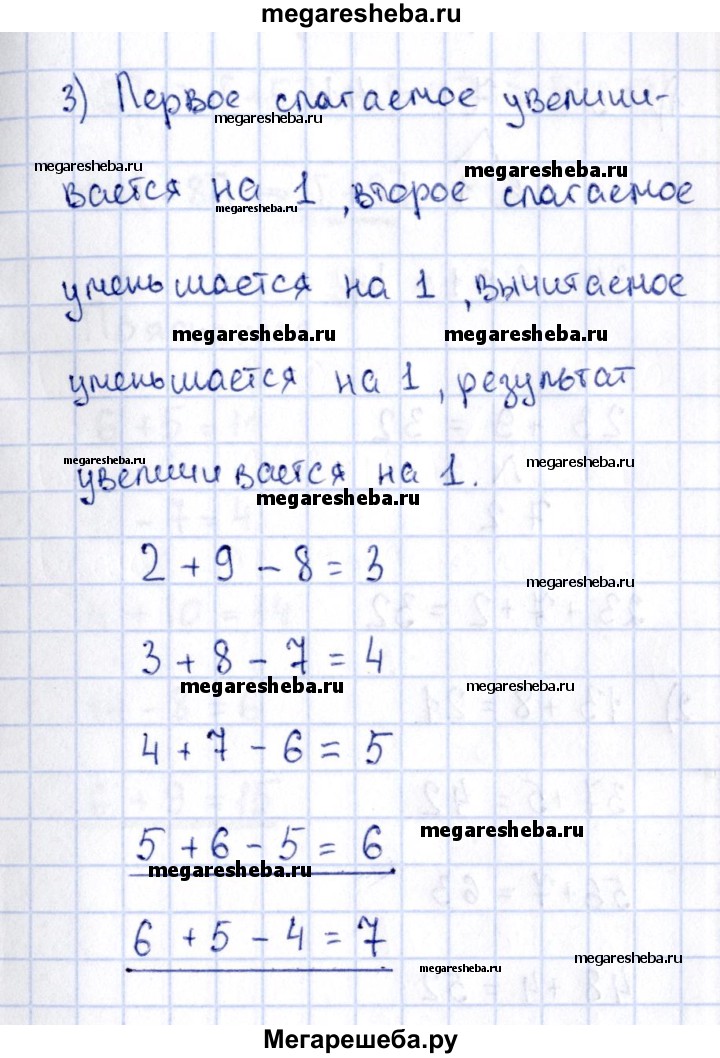 megaresheba.ru
3) Первое слагаемое увеличи-
megaresheba.ru
megaresheba.ru
megaresheba.ru
вается на 1, второе слагаемое
megaresheba.ru
уменьшается на 1, вычитаемое
megaresheba.ru megaresheba.ru
уменьшается на 1, результат
megaresheba.ru megaresheba.ru
увеличивается на 1.
megaresheba.ru
2 + 9 - 8 = 3
megaresheba.ru
3 + 8 - 7 = 4
megaresheba.ru megaresheba.ru
4 + 7 - 6 = 5
megaresheba.ru
5 + 6 - 5 = 6
megaresheba.ru
6 + 5 - 4 = 7
megaresheba.ru megaresheba.ru
Мегарешеба.ру